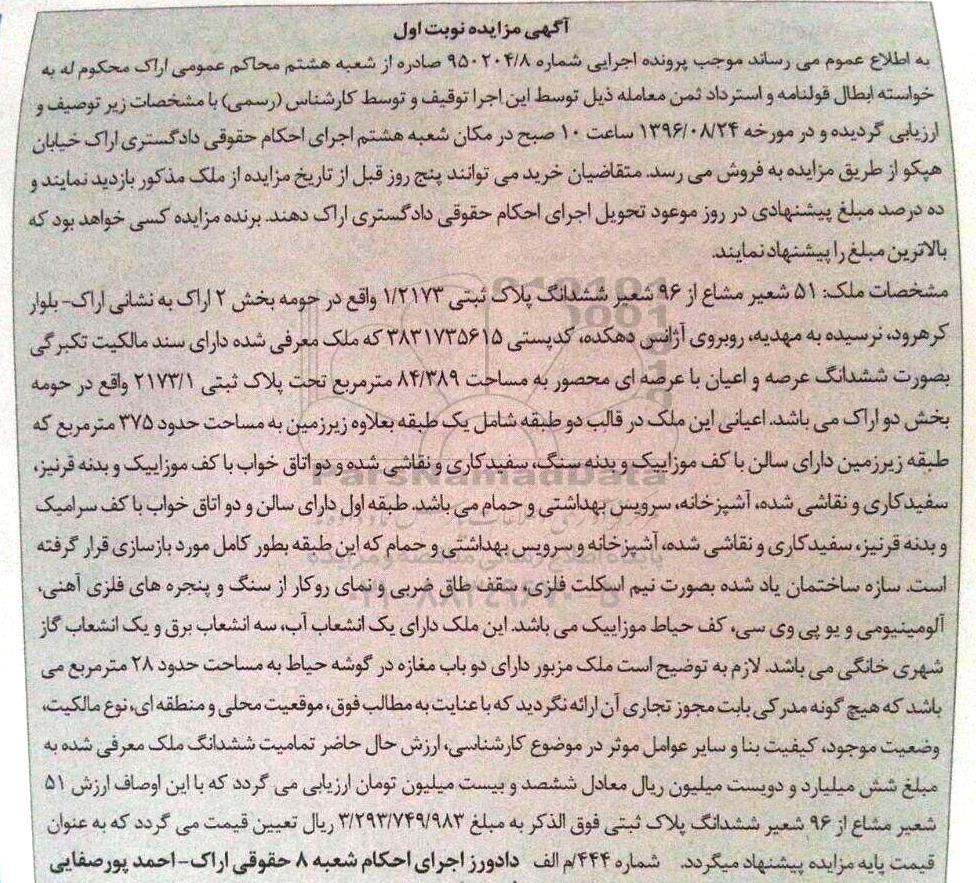 آگهی مزایده نوبت اول
به اطلاع عموم می رساند موجب پرونده اجرایی شماره ۹۵۰۲۰۴/۸ صادره از شعبه هشتم محاکم عمومی اراک محکوم له به
خواسته ابطال قولنامه و استرداد ثمن معامله ذیل توسط این اجرا توقیف و توسط کارشناس (رسمی) با مشخصات زیر توصیف و
ارزیابی گردیده و در مورخه ۱۳۹۶/۰۸/۲۴ ساعت ۱۰ صبح در مکان شعبه هشتم اجرای احکام حقوقی دادگستری اراک خیابان
هپکو از طریق مزایده به فروش می رسد. متقاضیان خرید می توانند پنج روز قبل از تاریخ مزایده از ملک مذکور بازدید نمایند و
ده درصد مبلغ پیشنهادی در روز موعود تحویل اجرای احکام حقوقی دادگستری اراک دهند. برنده مزایده کسی خواهد بود که
بالاترین مبلغ را پیشنهاد نمایند.
مشخصات ملک: ۵۱ شعیر مشاع از ۹۶ شعیر ششدانگ پلاک ثبتی ۱/۲۱۷۳ واقع در حومه بخش ۲ اراک به نشانی اراک- بلوار
کرهرود، نرسیده به مهدیه، روبروی آژانس دهکده، کدپستی ۳۸۳۱۷۳۵۶۱۵ که ملک معرفی شده دارای سند مالکیت تکبرگی
بصورت ششدانگ عرصه و اعیان با عرصه ای محصور به مساحت ۸۴/۳۸۹ مترمربع تحت پلاک ثبتی ۲۱۷۳/۱ واقع در حومه
بخش دو اراک می باشد. اعیانی این ملک در قالب دو طبقه شامل یک طبقه بعلاوه زیرزمین به مساحت حدود ۳۷۵ مترمربع که
طبقه زیرزمین دارای سالن با کف موزاییک و بدنه سنگ، سفیدکاری و نقاشی شده و دو اتاق خواب با کف موزاییک و بدنه قرنیز،
سفیدکاری و نقاشی شده، آشپزخانه، سرویس بهداشتی و حمام می باشد. طبقه اول دارای سالن و دو اتاق خواب با کف سرامیک
و بدنه قرنیز، سفیدکاری و نقاشی شده، آشپزخانه و سرویس بهداشتی و حمام که این طبقه بطور کامل مورد بازسازی قرار گرفته
است. سازه ساختمان یاد شده بصورت نیم اسکلت فلزی، سقف طاق ضربی و نمای روکار از سنگ و پنجره های فلزی آهنی،
آلومینیومی و یو پی وی سی، کف حیاط موزاییک می باشد. این ملک دارای یک انشعاب آب، سه انشعاب برق و یک انشعاب گاز
شهری خانگی می باشد. لازم به توضیح است ملک مزبور دارای دو باب مغازه در گوشه حیاط به مساحت حدود ۲۸ مترمربع می
باشد که هیچ گونه مدرکی بابت مجوز تجاری آن ارائه نگردید که با عنایت به مطالب فوق، موقعیت محلی و منطقه ای، نوع مالکیت،
وضعیت موجود، کیفیت بنا و سایر عوامل موثر در موضوع کارشناسی، ارزش حال حاضر تمامیت ششدانگ ملک معرفی شده به
مبلغ شش میلیارد و دویست میلیون ریال معادل ششصد و بیست میلیون تومان ارزیابی می گردد که با این اوصاف ارزش ۵۱
شعیر مشاع از ۹۶ شعیر ششدانگ پلاک ثبتی فوق الذکر به مبلغ ۳/۲۹۳/۷۴۹/۹۸۳ ریال تعیین قیمت می گردد که به عنوان
قیمت پایه مزایده پیشنهاد میگردد. شماره ۴۴۴/م الف دادورز اجرای احکام شعبه ۸ حقوقی اراک- احمد پورصفایی
ParsNamadData